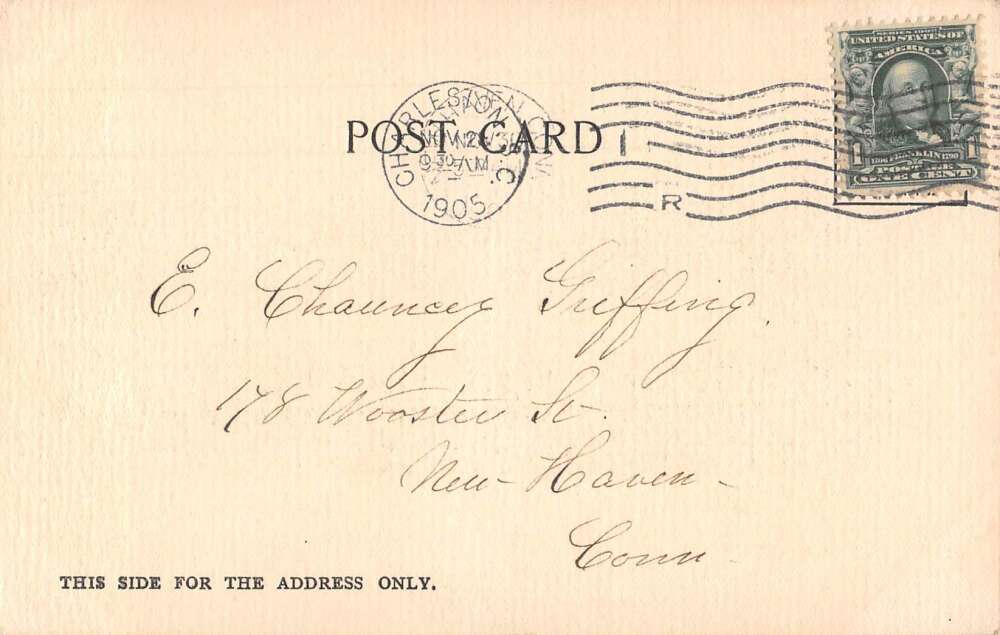 SERIES 1902
UNITED STATES OF
AMERICA
1 1
FRANKLIN
POSTAGE
ONE CENT
POST CARD
CHARLESTON S.C.
NOV
9 30 AM
1905
R
E. Chauncey Griffing.
178 Wooster St.
New-Haven-
Conn-
THIS SIDE FOR THE ADDRESS ONLY.